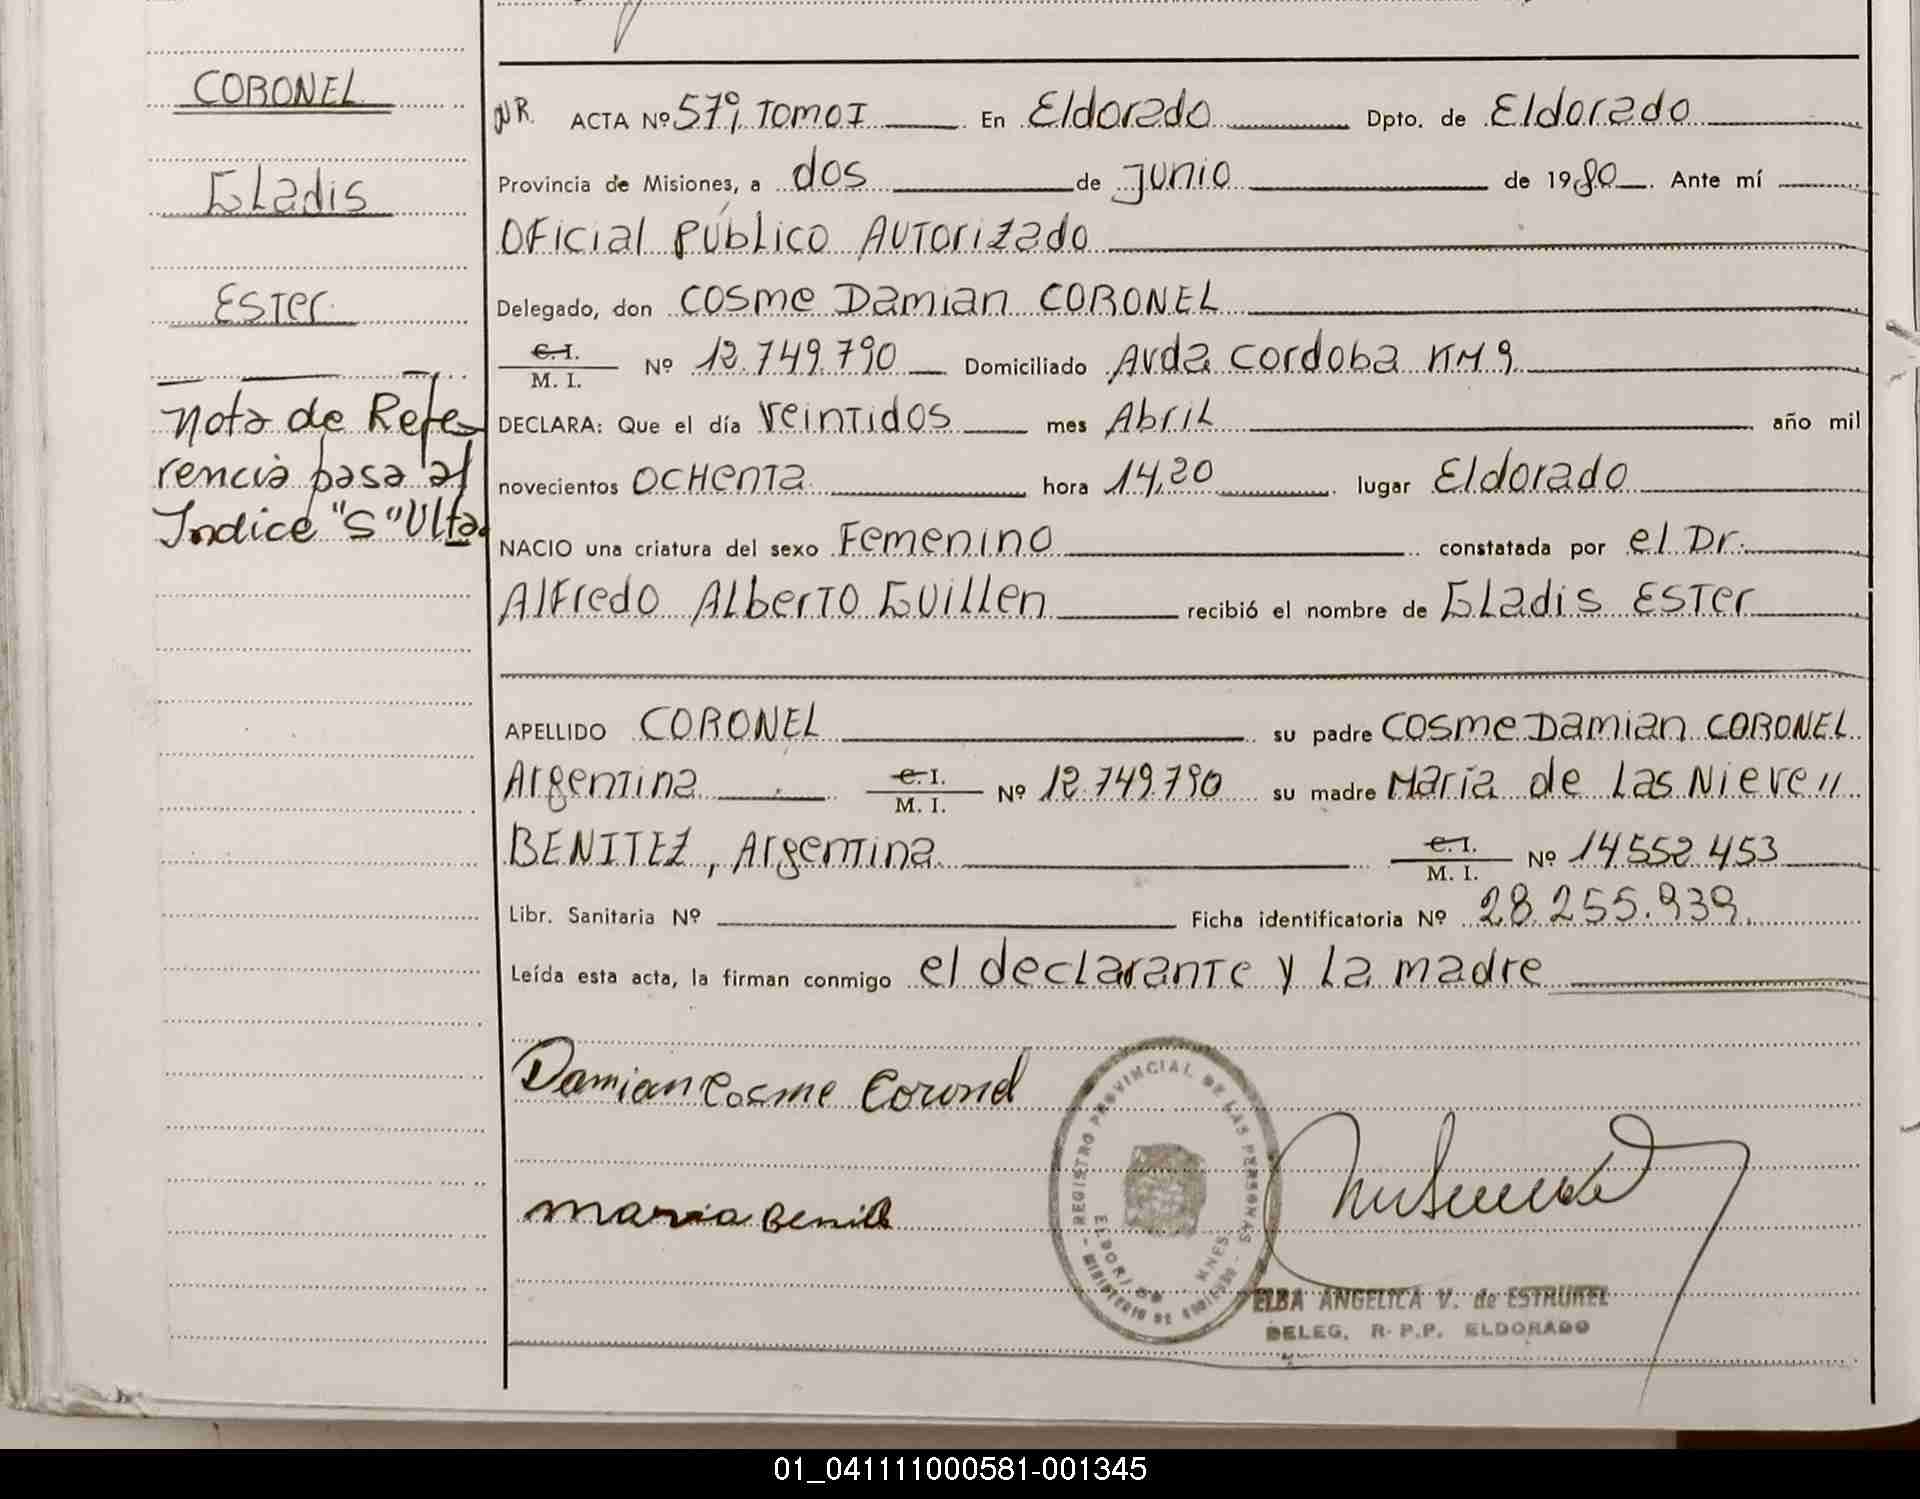 CORONEL
Gladis
Ester
Nota de Refe
rencia pasa al
Indice "S" Ulta.
NR. ACTA Nº 579, TOMO I En Eldorado Dpto. de Eldorado
Provincia de Misiones, a dos de junio de 1980. Ante mí
Oficial Público Autorizado
Delegado, don Cosme Damian CORONEL
C. I.
M. I. Nº 12.749.790 Domiciliado Avda Cordoba KM 9
DECLARA: Que el día veintidos mes Abril año mil
novecientos ochenta hora 14,20 lugar Eldorado
NACIO una criatura del sexo Femenino constatada por el Dr.
Alfredo Alberto Guillen recibió el nombre de Gladis Ester
APELLIDO CORONEL su padre Cosme Damian CORONEL
Argentina C. I.
M. I. Nº 12.749.790 su madre Maria de las Nieve//
BENITEZ, Argentina C. I.
M. I. Nº 14552453
Libr. Sanitaria Nº Ficha identificatoria Nº 28.255.939.
Leída esta acta, la firman conmigo el declarante y la madre
Damian Cosme Coronel
Maria Benit
REGISTRO PROVINCIAL DE LAS PERSONAS
MINISTERIO DE GOBIERNO
ELDORADO MNES.
ELBA ANGELICA V. de ESTRUKEL
DELEG. R.P.P. ELDORADO
01_041111000581-001345